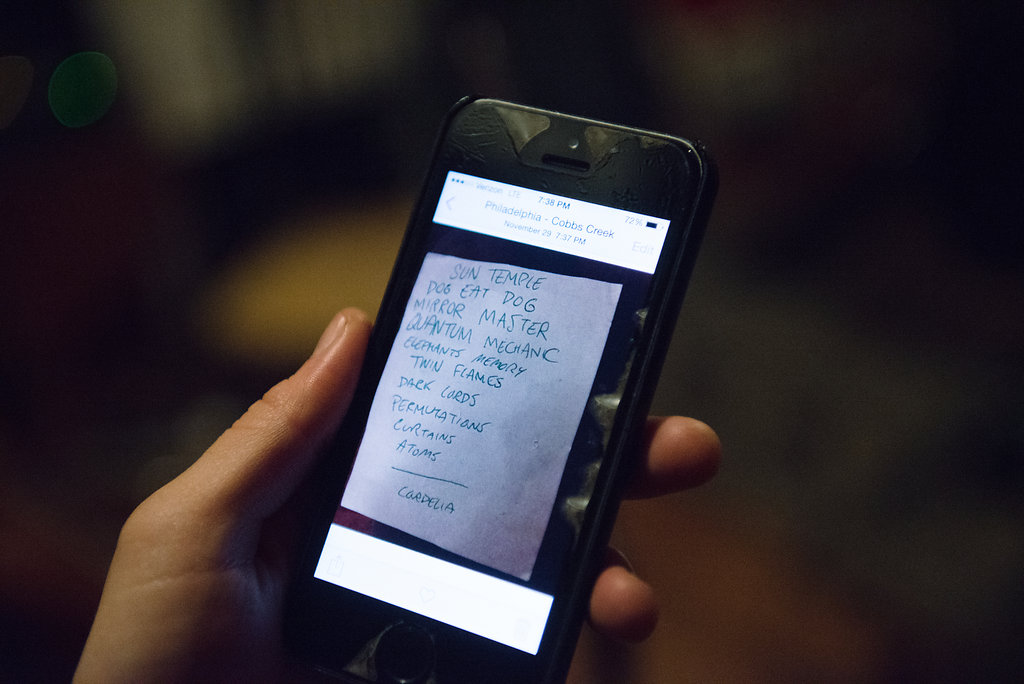 verizon LTE 7:38 PM 72%
Philadelphia - Cobbs Creek
November 29 7:37 PM
Edit
SUN TEMPLE
DOG EAT DOG
MIRROR MASTER
QUANTUM MECHANIC
ELEPHANTS MEMORY
TWIN FLAMES
DARK LORDS
PERMUTATIONS
CURTAINS
ATOMS
CORDELIA